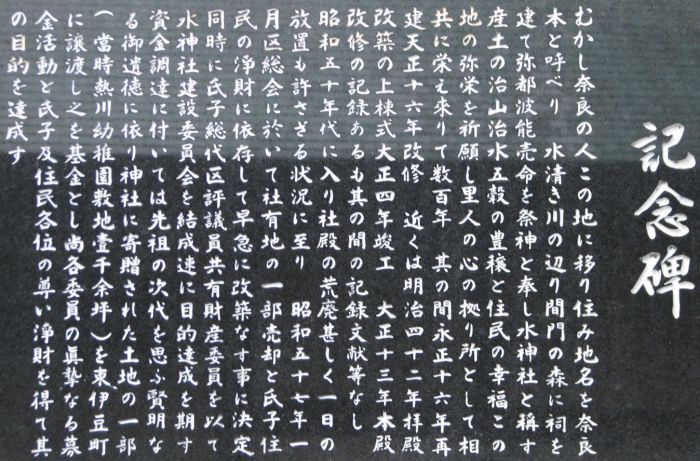 記念碑
むかし奈良の人この地に移り住み地名を奈良
本と呼べり　水清き川の辺り間門の森に祠を
建て弥都波能売命を祭神と奉し水神社と称す
産土の治山治水五穀の豊穣と住民の幸福この
地の弥栄を祈願し里人の心の拠り所として相
共に栄え来りて数百年　其の間永正十六年再
建天正十六年改修　近くは明治四十二年拝殿
改築の上棟式大正四年竣工　大正十三年本殿
改修の記録あるも其の間の記録文献等なし
昭和五十年代に入り社殿の荒廃甚しく一日の
放置も許さざる状況に至り　昭和五十七年一
月区総会に於いて社有地の一部売却と氏子住
民の浄財に依存して早急に改築なす事に決定
同時に氏子総代区評議員共有財産委員を以て
水神社建設委員会を結成速に目的達成を期す
資金調達に付いては先祖の次代を思ふ賢明な
る御遺徳に依り神社に寄贈された土地の一部
（当時熱川幼稚園敷地壹千余坪）を東伊豆町
に譲渡し之を基金とし尚各委員の眞摯なる募
金活動と氏子及住民各位の尊い浄財を得て其
の目的を達成す